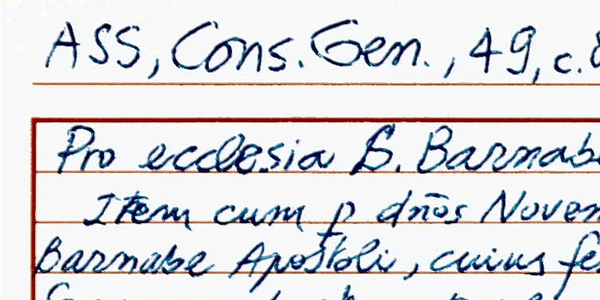 ASS, Cons. Gen., 49, c.
Pro ecclesia S. Barnabe
Item cum p dños Noven
Barnabe Apostoli, cuius fe